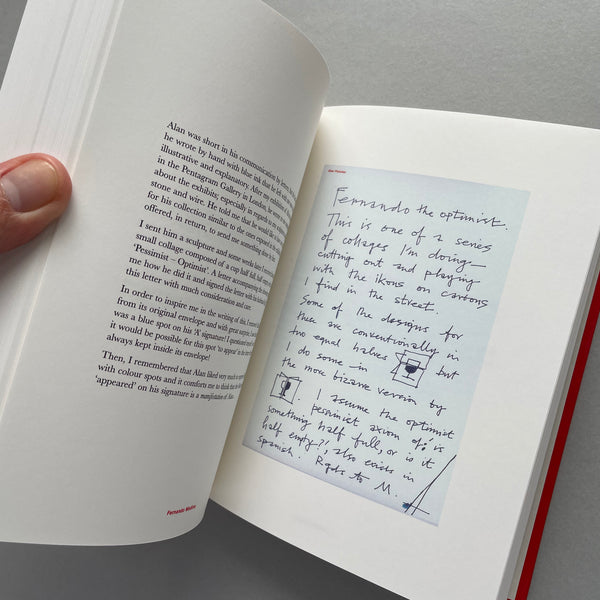 Alan was short in his communication by
he wrote by hand with blue ink that he
illustrative and explanatory. After my exhibition
in the Pentagram Gallery in London, he
about the exhibits, especially in regard to
stone and wire. He told me that he would like
for his collection similar to the ones
offered, in return, to send me something done
I sent him a sculpture and some weeks later I
small collage composed of a cup half full, half
'Pessimist – Optimist'. A letter accompanying the
me how he did it and signed the letter with the
this letter with much consideration and care.
In order to inspire me in the writing of this, I
from its original envelope and with great surprise,
was a blue spot on his 'A' signature! I questioned
it would be possible for this spot 'to appear'
always kept inside its envelope!
Then, I remembered that Alan liked very much to
with colour spots and it comforts me to think that
'appeared' on his signature is a manifestation of Alan.
Fernando Medina
Fernando the optimist.
This is one of a series
of collages I'm doing—
cutting out and playing
with the ikons on cartons
I find in the street.
Some of the designs for
these are conventionally in
two equal halves but
I do some in
the more bizarre version by
. I assume the optimist
pessimist axiom of: 'is
something half full, or is it
half empty?', also exists in
spanish. Rgds to M. A